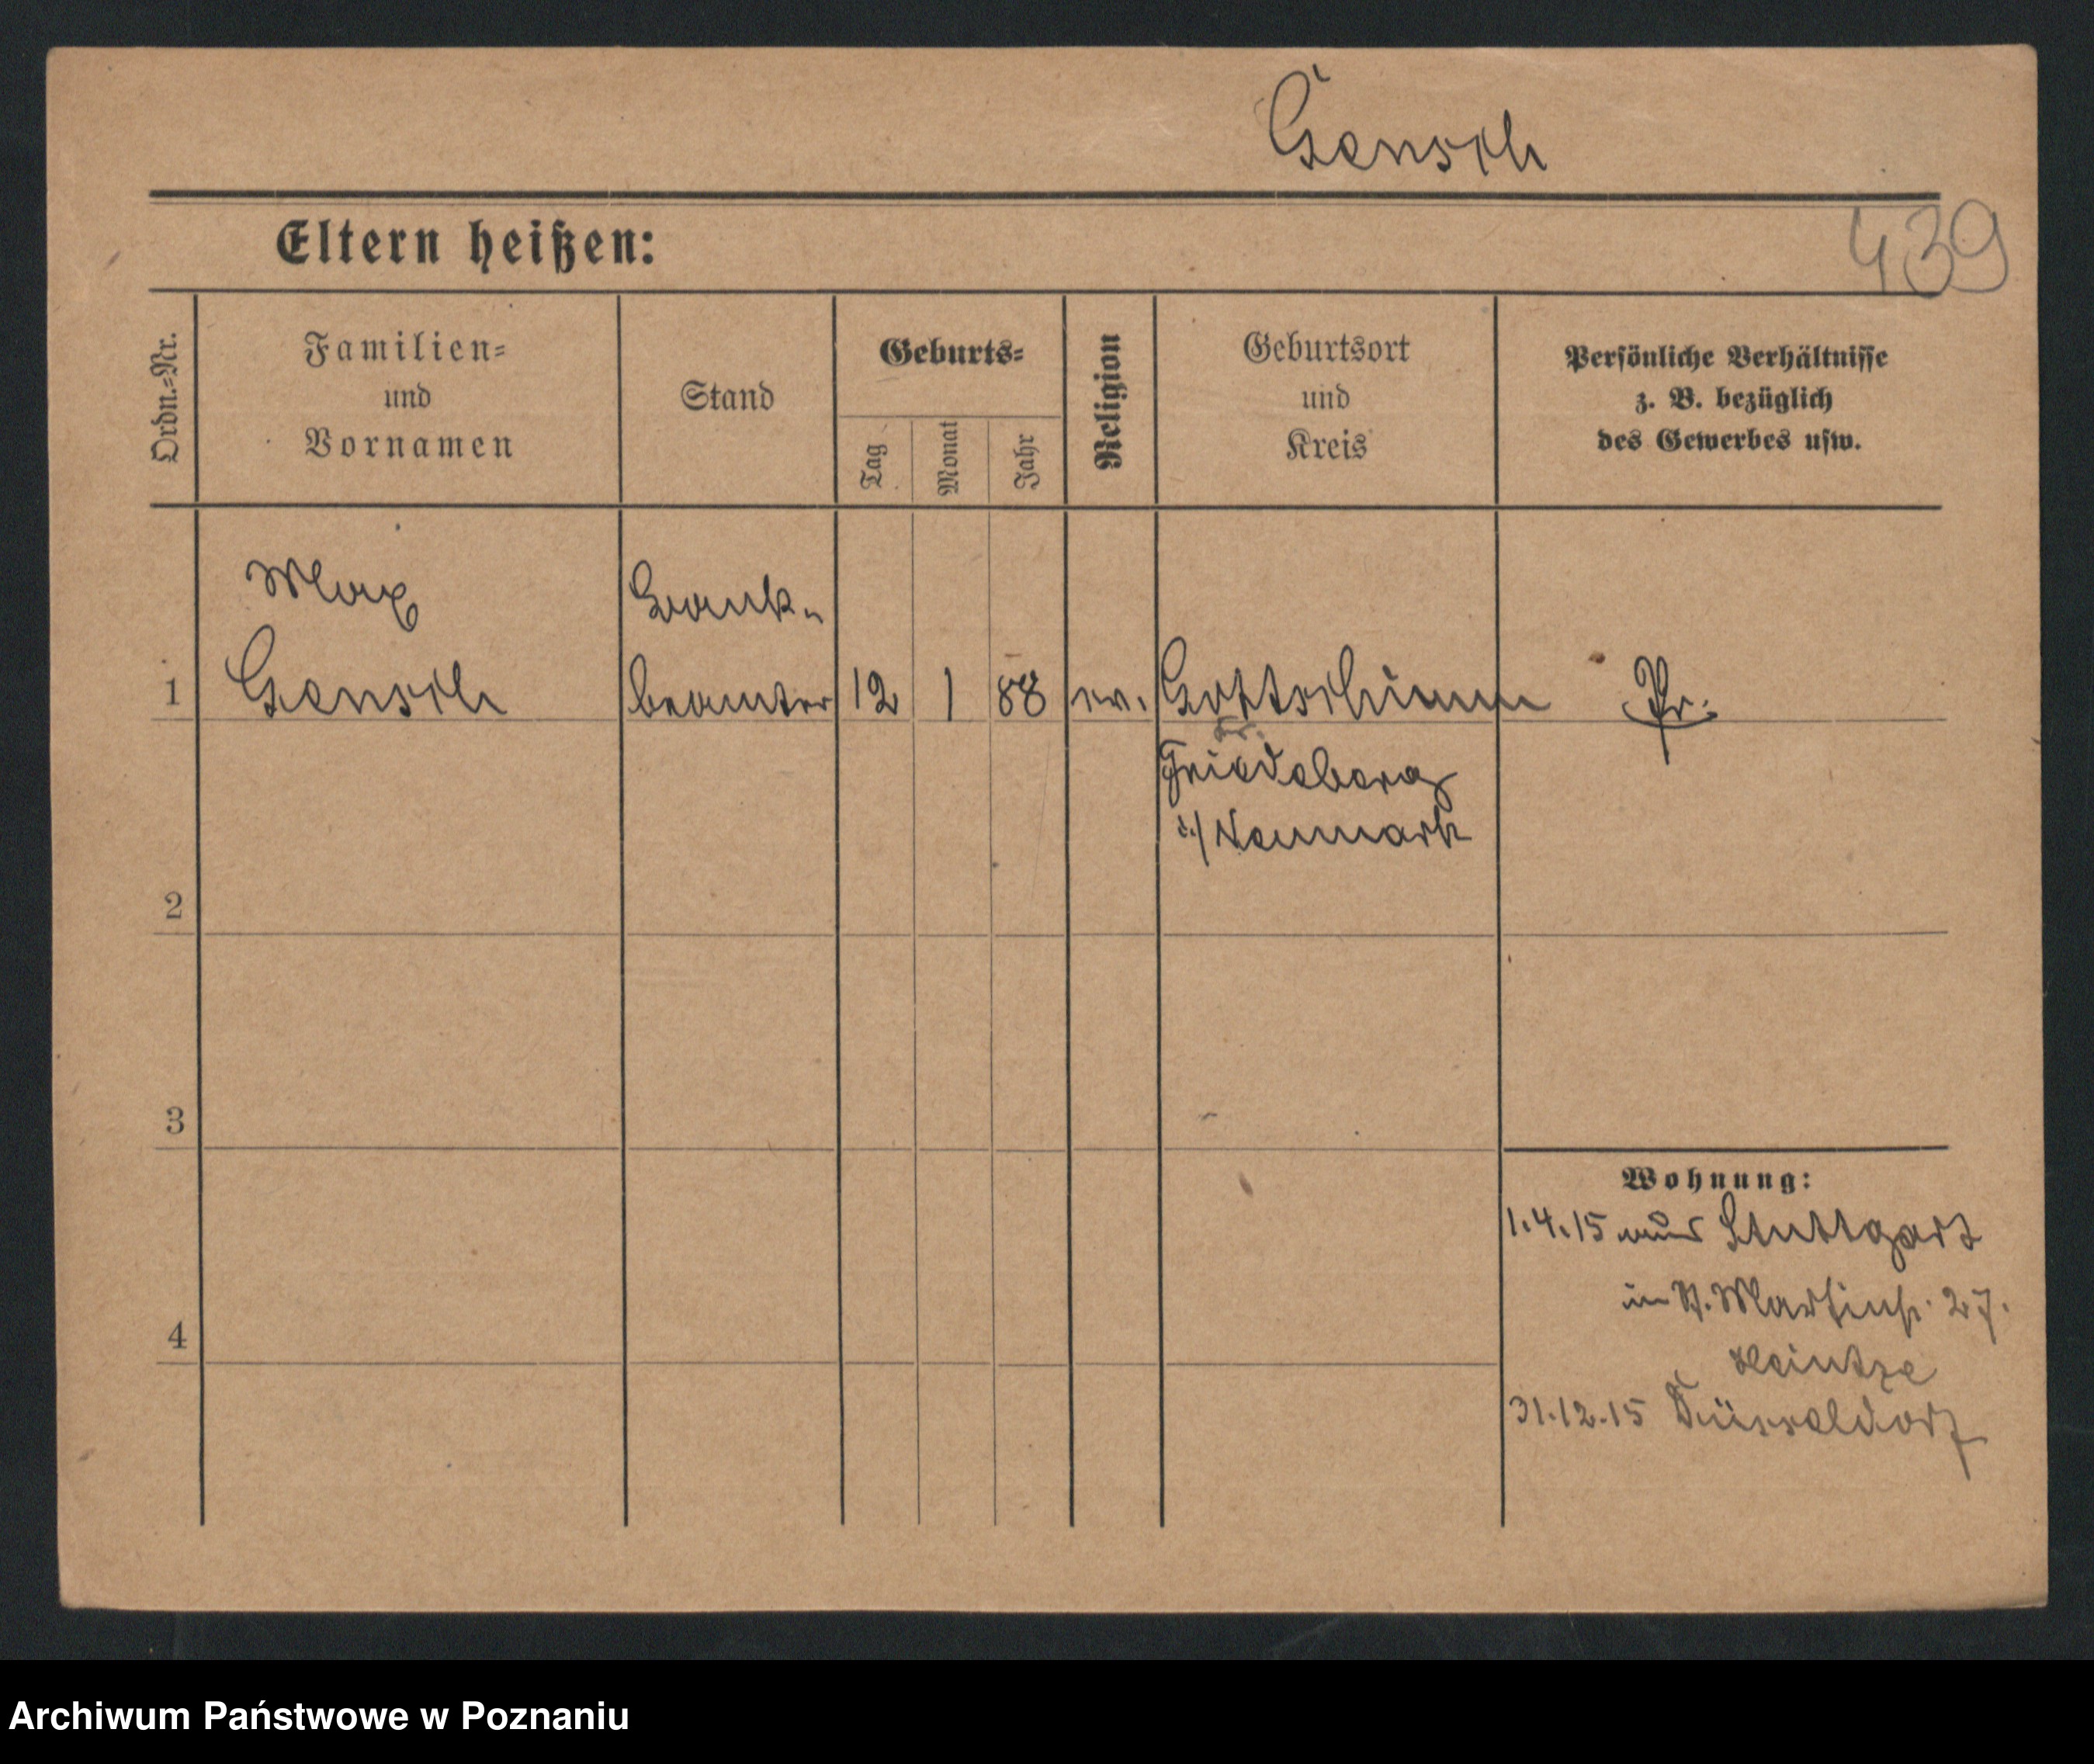 Gensch
Eltern heißen:
439
Ordn.-Nr.
Familien-
und
Vornamen
Stand
Geburts-
Tag
Monat
Jahr
Religion
Geburtsort
und
Kreis
Persönliche Verhältnisse
z. B. bezüglich
des Gewerbes usw.
Max Bank-
1 Gensch beamter 12 1 88 ev. Gottschimm Pr.
Kr.
Friedeberg
i/Neumark
2
3
Wohnung:
1.4.15 aus Stuttgart
in St. Martinstr. 27.
4
Heintze
31.12.15 Düsseldorf
Archiwum Państwowe w Poznaniu